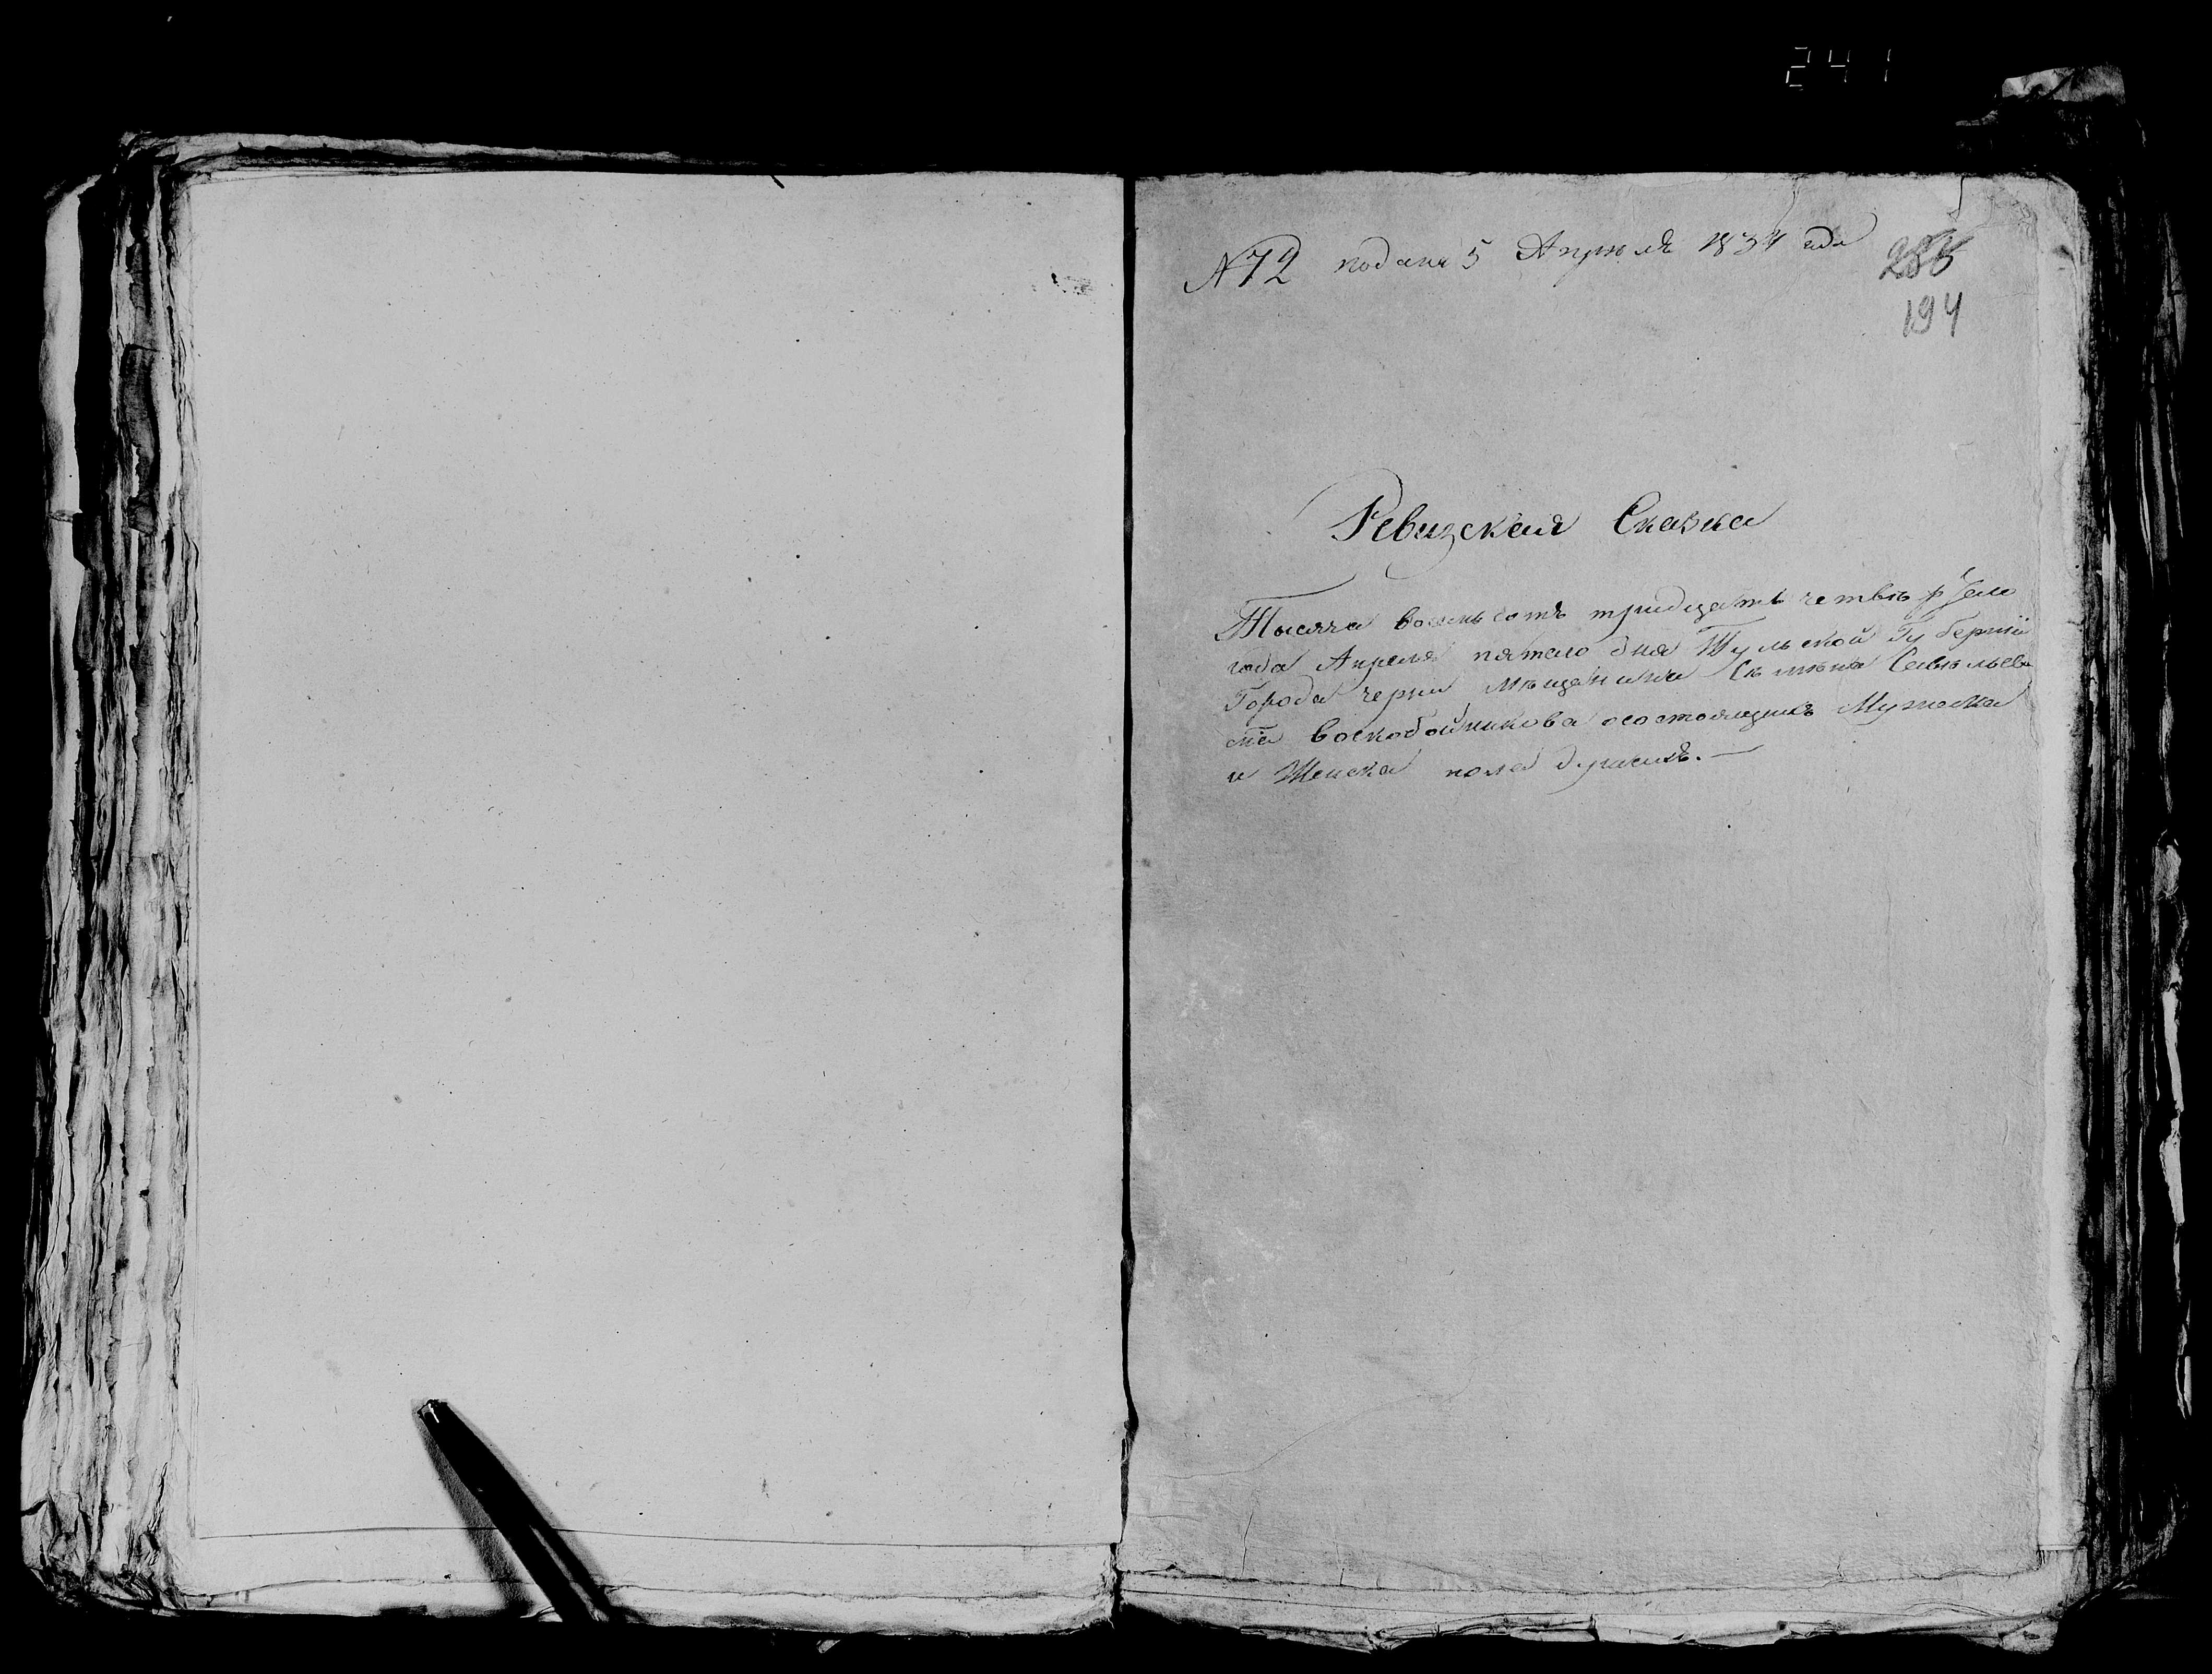 241
N 72 подана 5 Апреля 1834 года
285
194
Ревизская Сказка
Тысяча восемь сотъ тридцать четвертаго
года Апреля пятаго дня Тульской Губернии
Города черни мѣщанина Савельева
воскобойникова осостоящихъ Мужска
и Женска пола душахъ.—